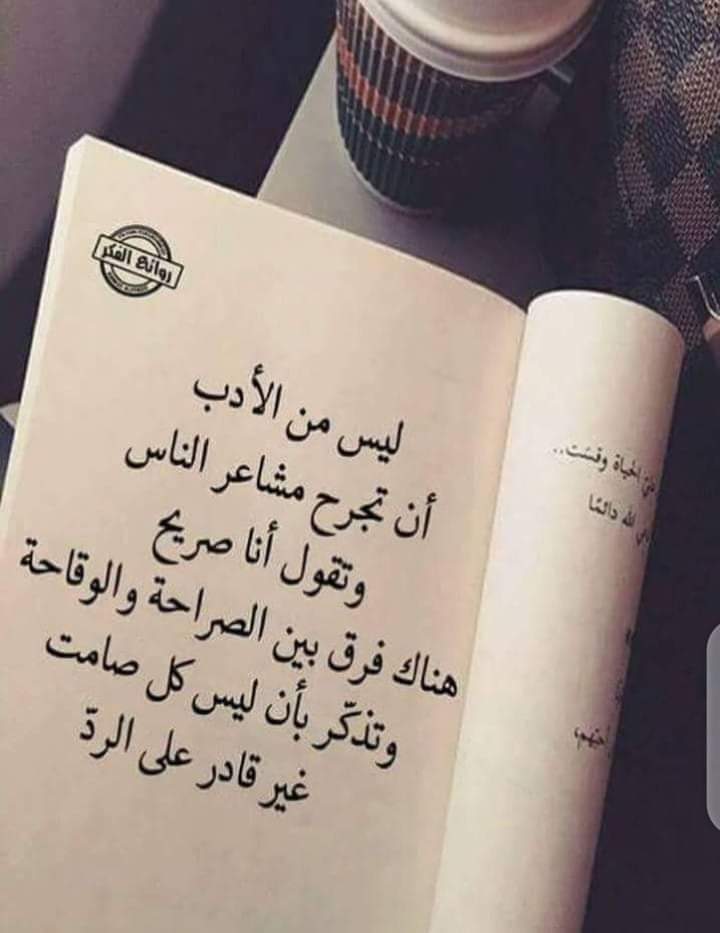 روائع الفكر
ليس من الأدب
أن تجرح مشاعر الناس
وتقول أنا صريح
هناك فرق بين الصراحة والوقاحة
وتذكّر بأن ليس كل صامت
غير قادر على الردّ
الحياة وقست..
الله دائمًا